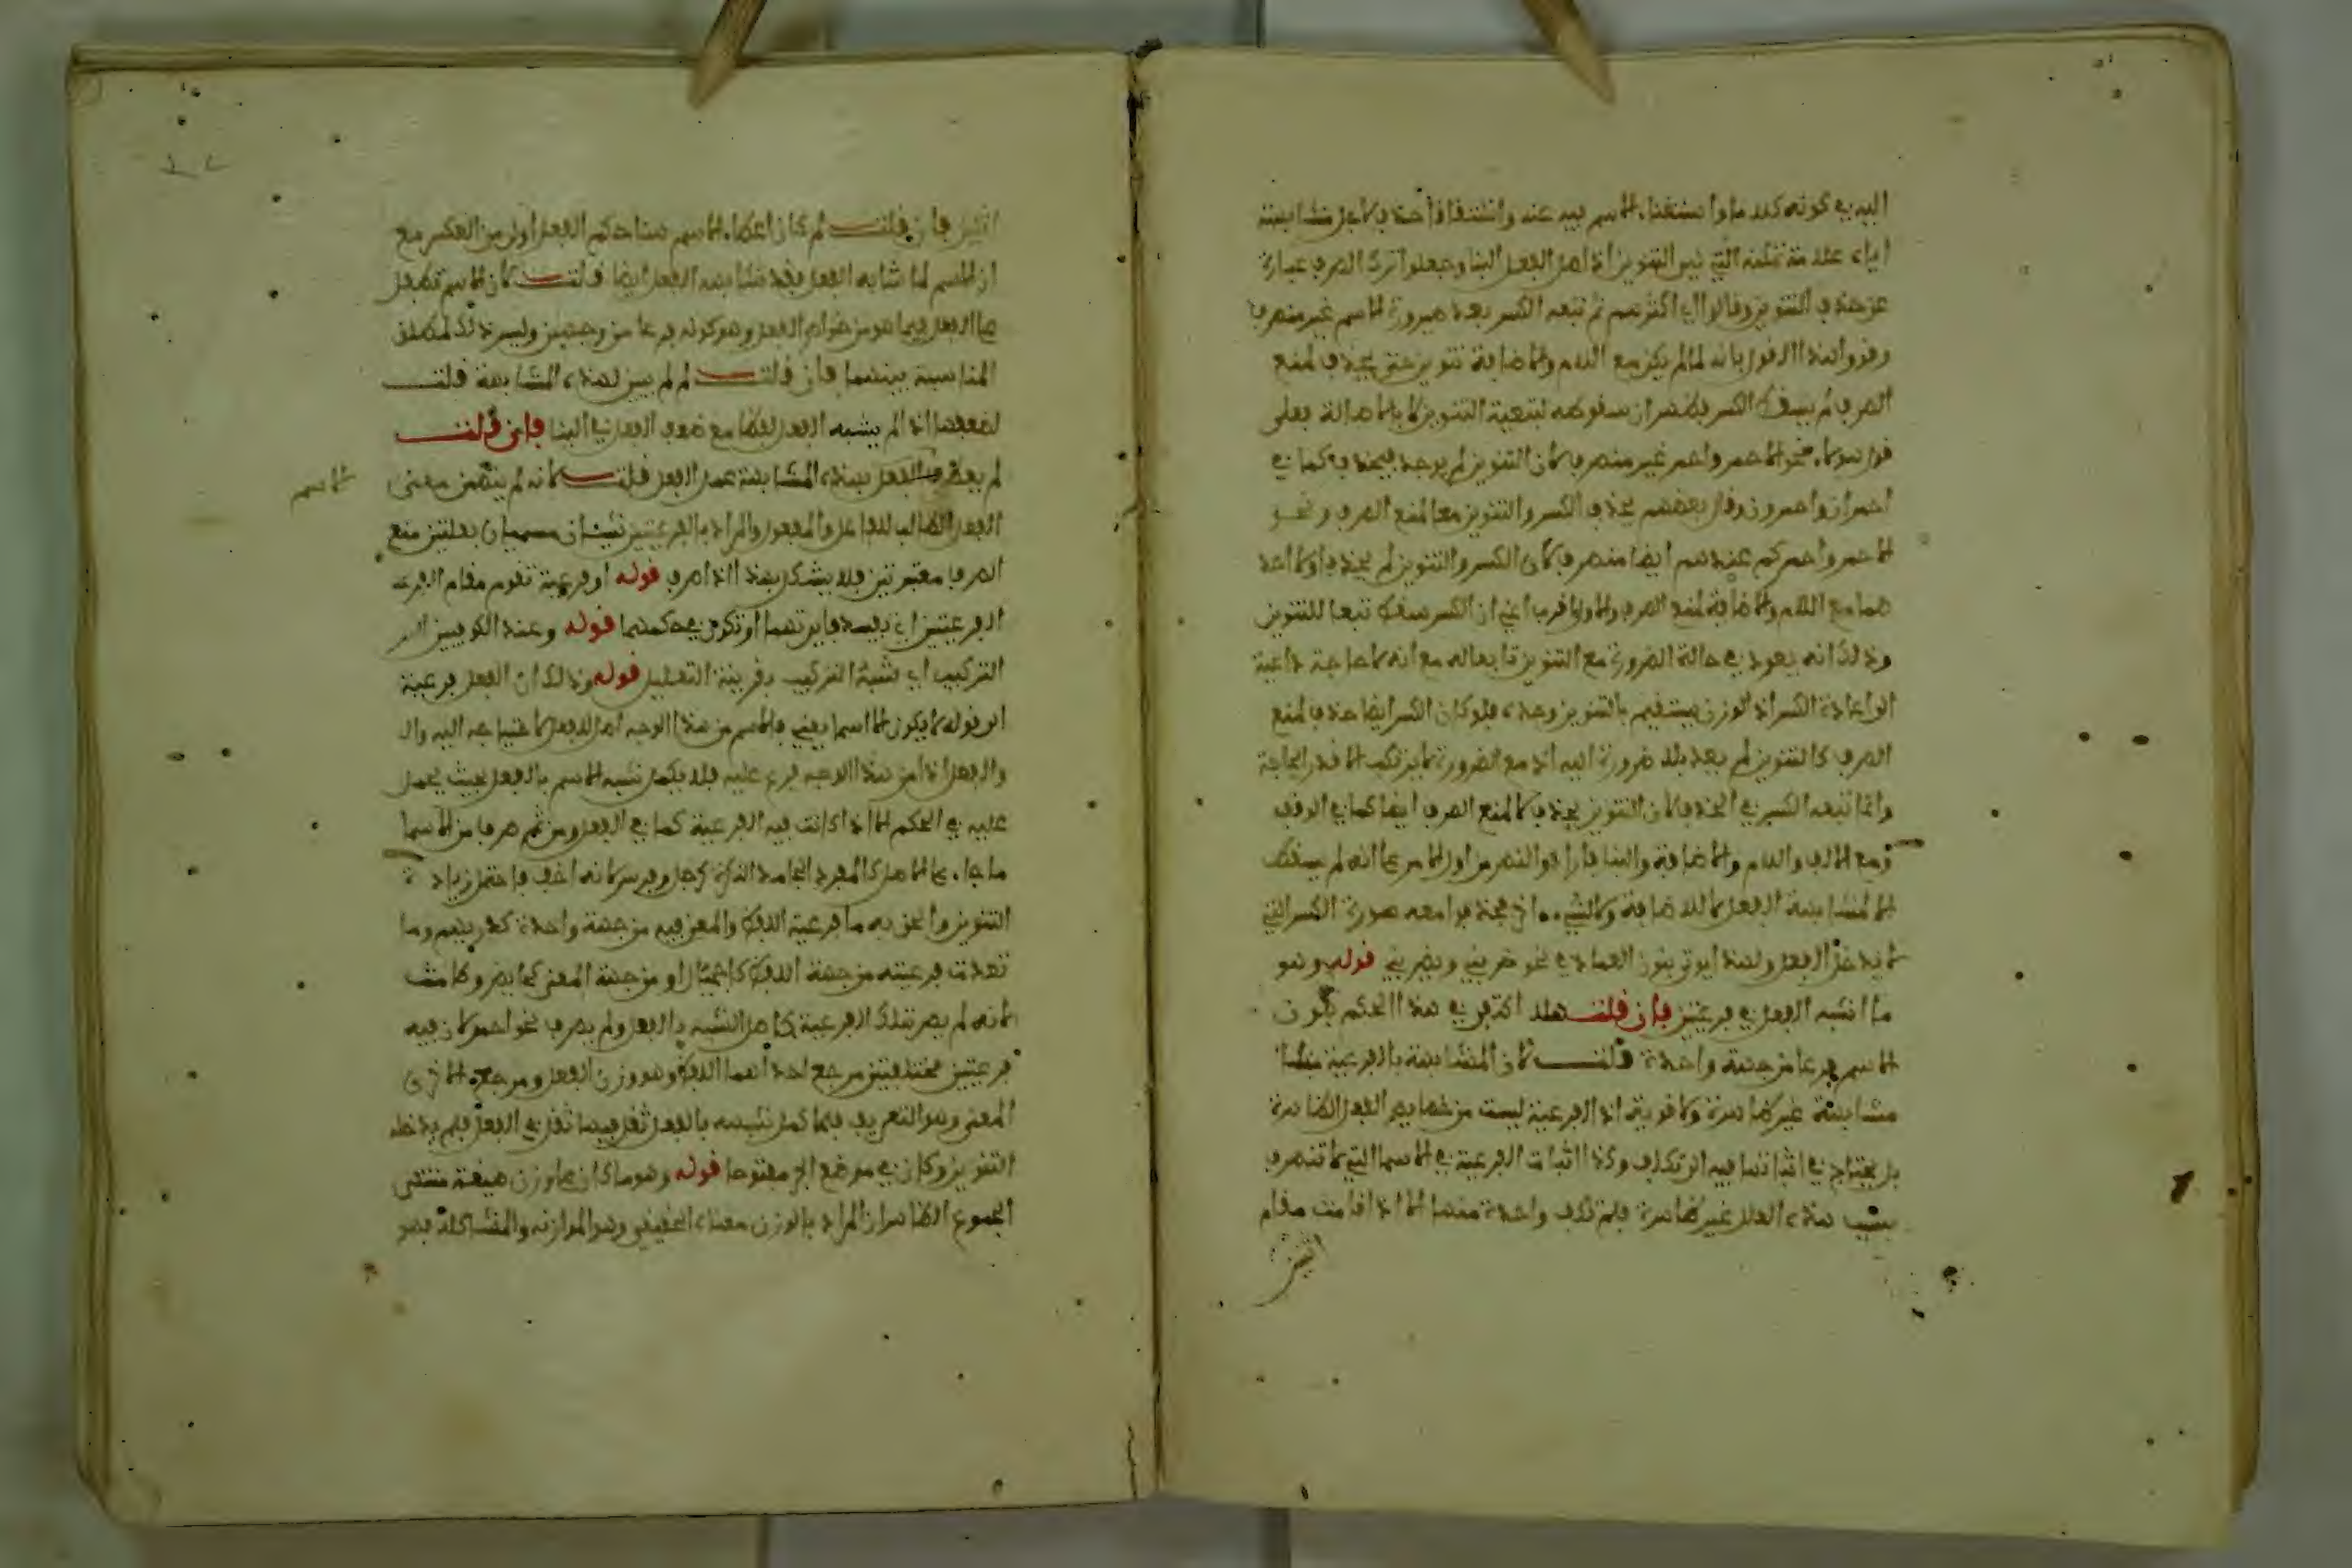 اليه في كونه كلاما واستغناء الاسم فيه عنه واشتقاقا حذف لاجل مشابهته
اياه علامة تمكنه التي هي التنوين اذ اصل الفعل البنا وجعلوا ترك الصرف عبارة
عن حذف التنوين وقالوا اي اكثرهم ثم تبعه الكسر بعد صيرورة الاسم غير منصرف
وقووا هذا القول بانه لما لم يكن مع اللام والاضافة تنوين حتى يحذف لمنع
الصرف لم يسقط الكسر فظهر ان سقوطه لتبعية التنوين لا بالاصالة فعلى
قول هولاء نحو الاحمر واحمركم غير منصرف لان التنوين لم يوجد فيحذف كما في
احمران واحمرون وقال بعضهم يحذف الكسر والتنوين معا لمنع الصرف ونحو
الاحمر واحمركم عندهم ايضا منصرف لان الكسر والتنوين لم يحذفا ولا احد
هما مع اللام والاضافة لمنع الصرف والاول اقرب اعني ان الكسر سقط تبعا للتنوين
وذلك انه يعود في حالة الضرورة مع التنوين تابعا له مع انه لا حاجة داعية
الى اعادة الكسر اذ الوزن يستقيم بالتنوين وحده فلو كان الكسر ايضا حذف لمنع
الصرف كالتنوين لم يعد بلا ضرورة اليه اذ مع الضرورة لا يرتكب الا قدر الحاجة
وانما تبعه الكسر في الحذف لان التنوين يحذف لا لمنع الصرف ايضا كما في الوقف
ومع الالف واللام والاضافة والبنا فارادوا النص من اول الامر على انه لم يسقط
الا لمشابهة الفعل لا للاضافة ولا لشيء اخر فحذفوا معه صورة الكسر التي
لا تدخل الفعل ولهذا يوتى بنون العماد في نحو ضربني ويضربني قوله وهو
ما اشبه الفعل في فرعيتين فان قلت هلا اكتفي في هذا الحكم بكون
الاسم فرعا من جهة واحدة قلت لان المشابهة بالفرعية
مشابهة غير ظاهرة ولا قوية اذ الفرعية ليست من خصايص الفعل الظاهرة
بل يحتاج في اثباتها فيه الى تكلف وكذا اثبات الفرعية في الاسما التي لا تنصرف
بسبب هذه العلل غير ظاهرة فلم تكف واحدة منها الا اذا قامت مقام
اثنتين
اثنتين فان قلت لم كان اعطاء الاسم هنا حكم الفعل اولى من العكس مع
ان الاسم لما شابه الفعل فقد شابهه الفعل ايضا قلت لان الاسم تطفل
على الفعل فيما هو من خواص الفعل وهو كونه فرعا من وجهين وليس ذلك لمطلق
المناسبة بينهما فان قلت لم لم يبن لهذه المشابهة قلت
لضعفها اذ لم يشبه الفعل لفظا مع ضعف الفعل في البنا فان قلت
لم يعط الفعل بهذه المشابهة عمل الفعل قلت لانه لم يتضمن معنى
الاسم
الفعل الطالب للفاعل والمفعول والمراد بالفرعيتين شيئان مسميان بعلتين منع
الصرف معتبرتين فلا يشكل بهذا اذا صرف قوله او فرعية تقوم مقام الفرعيتين
الفرعيتين اي فيسد فايدتهما او تكون في حكمهما قوله وعند الكوفيين
التركيب اي شبه التركيب بقرينة التعليل قوله وذلك ان الفعل فرعية
الى قوله لا يكون الا اسما يعني فالاسم من هذا الوجه اصل للفعل لاحتياجه اليه وال
والفعل اذا من هذا الوجه فرع عليه فلا يكمل شبه الاسم بالفعل بحيث يحمل
عليه في الحكم الا اذا كانت فيه الفرعية كما في الفعل ومن ثم صرف من الاسما
ما جاء على الاصل كالمفرد الجامد النكرة كرجل وفرس لانه اخف فاحتمل زيادة
التنوين والحق به ما فرعية اللفظ والمعنى فيه من جهة واحدة كدريهم وما
تعددت فرعيته من جهة اللفظ كاجيمال او من جهة المعنى كحايض وطامث
لانه لم يصر بتلك الفرعية كامل الشبه بالفعل ولم يصرف نحو احمد لان فيه
فرعيتين مختلفتين مرجع احداهما اللفظ وهو وزن الفعل ومرجع الاخرى
المعنى وهو التعريف فلما كمل شبهه بالفعل ثقل فيها ثقل في الفعل فلم يدخله
التنوين وكان في موضع الجر مفتوحا قوله وهو ما كان على وزن صيغة منتهى
الجموع الظاهر ان المراد بالوزن معناه الحقيقي وهو الموازنه والمشاكلة فهو